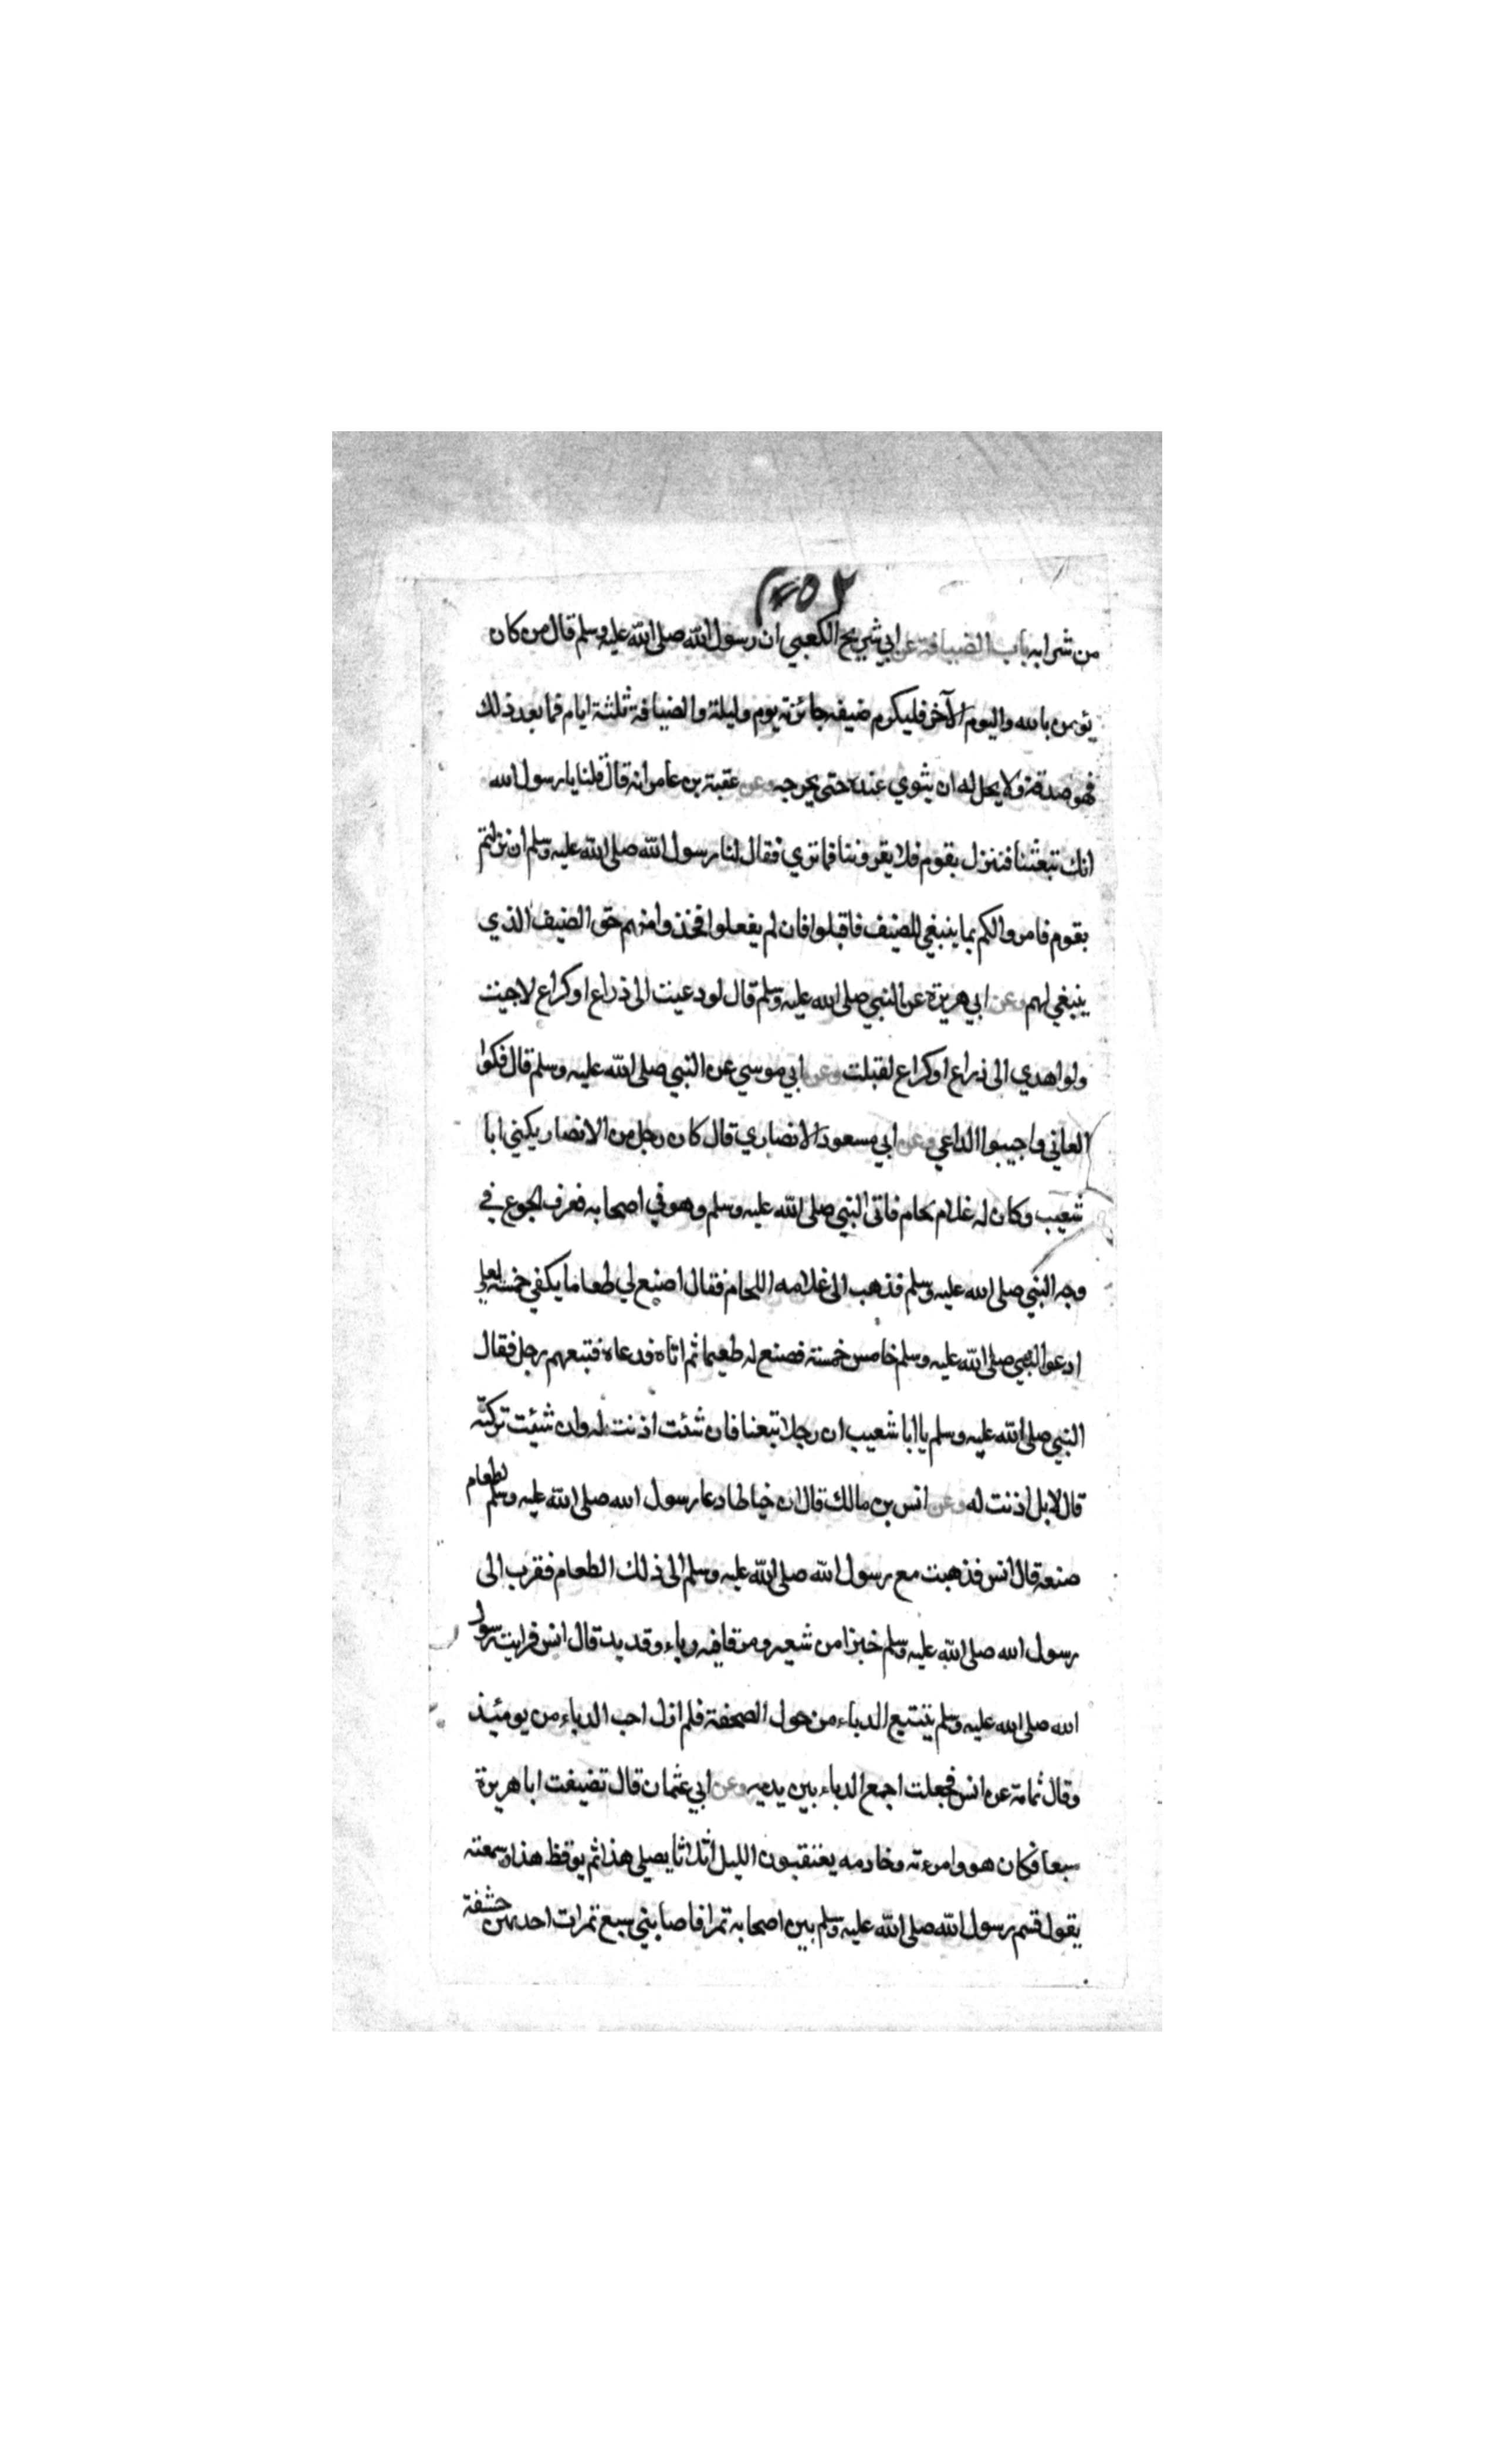 من شرابه باب الضيافة عن ابي شريح الكعبي ان رسول الله صلى الله عليه وسلم قال من كان
يؤمن بالله واليوم الآخر فليكرم ضيفه جائزته يوم وليلة والضيافة ثلثة ايام فما بعد ذلك
فهو صدقة ولا يحل له ان يثوي عنده حتى يحرجه وعن عقبة بن عامر انه قال قلنا يا رسول الله
انك تبعثنا فننزل بقوم فلا يقروننا فما تري فقال لنا رسول الله صلى الله عليه وسلم ان نزلتم
بقوم فامروا لكم بما ينبغي للضيف فاقبلوا فان لم يفعلوا فخذوا منهم حق الضيف الذي
ينبغي لهم وعن ابي هريرة عن النبي صلى الله عليه وسلم قال لو دعيت الى ذراع او كراع لاجبت
ولو اهدي الى ذراع او كراع لقبلت وعن ابي موسي عن النبي صلى الله عليه وسلم قال فكوا
العاني واجيبوا الداعي وعن ابي مسعود الانصاري قال كان رجل من الانصار يكني ابا
شعيب وكان له غلام لحام فاتى النبي صلى الله عليه وسلم وهو في اصحابه فعرف الجوع في
وجه النبي صلى الله عليه وسلم فذهب الى غلامه اللحام فقال اصنع لي طعاما يكفي خمسة لعلي
ادعو النبي صلى الله عليه وسلم خامس خمسة فصنع له طعيما ثم اتاه فدعاه فتبعهم رجل فقال
النبي صلى الله عليه وسلم يا ابا شعيب ان رجلا تبعنا فان شئت اذنت له وان شيئت تركته
قال لا بل اذنت له وعن انس بن مالك قال ان خياطا دعا رسول الله صلى الله عليه وسلم لطعام
صنعه قال انس فذهبت مع رسول الله صلى الله عليه وسلم الى ذلك الطعام فقرب الى
رسول الله صلى الله عليه وسلم خبزا من شعير ومرقا فيه دباء وقديد قال انس فرايت رسول
الله صلى الله عليه وسلم يتتبع الدباء من حول الصحفة فلم ازل احب الدباء من يومئذ
وقال ثمامة عن انس فجعلت اجمع الدباء بين يديه وعن ابي عثمان قال تضيفت ابا هريرة
سبعا فكان هو وامرءته وخادمه يعتقبون الليل اثلاثا يصلي هذا ثم يوقظ هذا وسمعته
يقول قسم رسول الله صلى الله عليه وسلم بين اصحابه تمرا فاصابني سبع تمرات احديهن حشفة